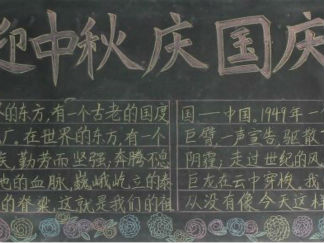 迎中秋庆国庆
的东方,有一个古老的国度
厂。在世界的东方,有一个
族,勤劳而坚强;奔腾不息
他的血脉,巍峨屹立的泰
的脊梁。这就是我们的祖
国——中国。1949年一
巨臂,一声宣告,驱散
阴霾;走过世纪的风
巨龙在云中穿梭,我
从没有像今天这样